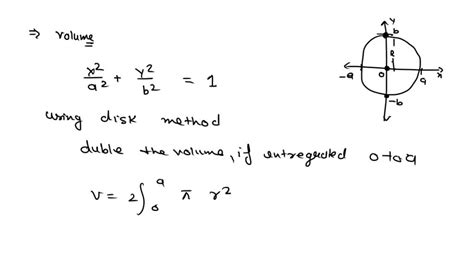 ⇒ volume
x²/a² + y²/b² = 1
using disk method
duble the volume, if entregraded 0 to a
V = 2∫₀ᵃ π r²
y
b
-a
0
a
x
-b